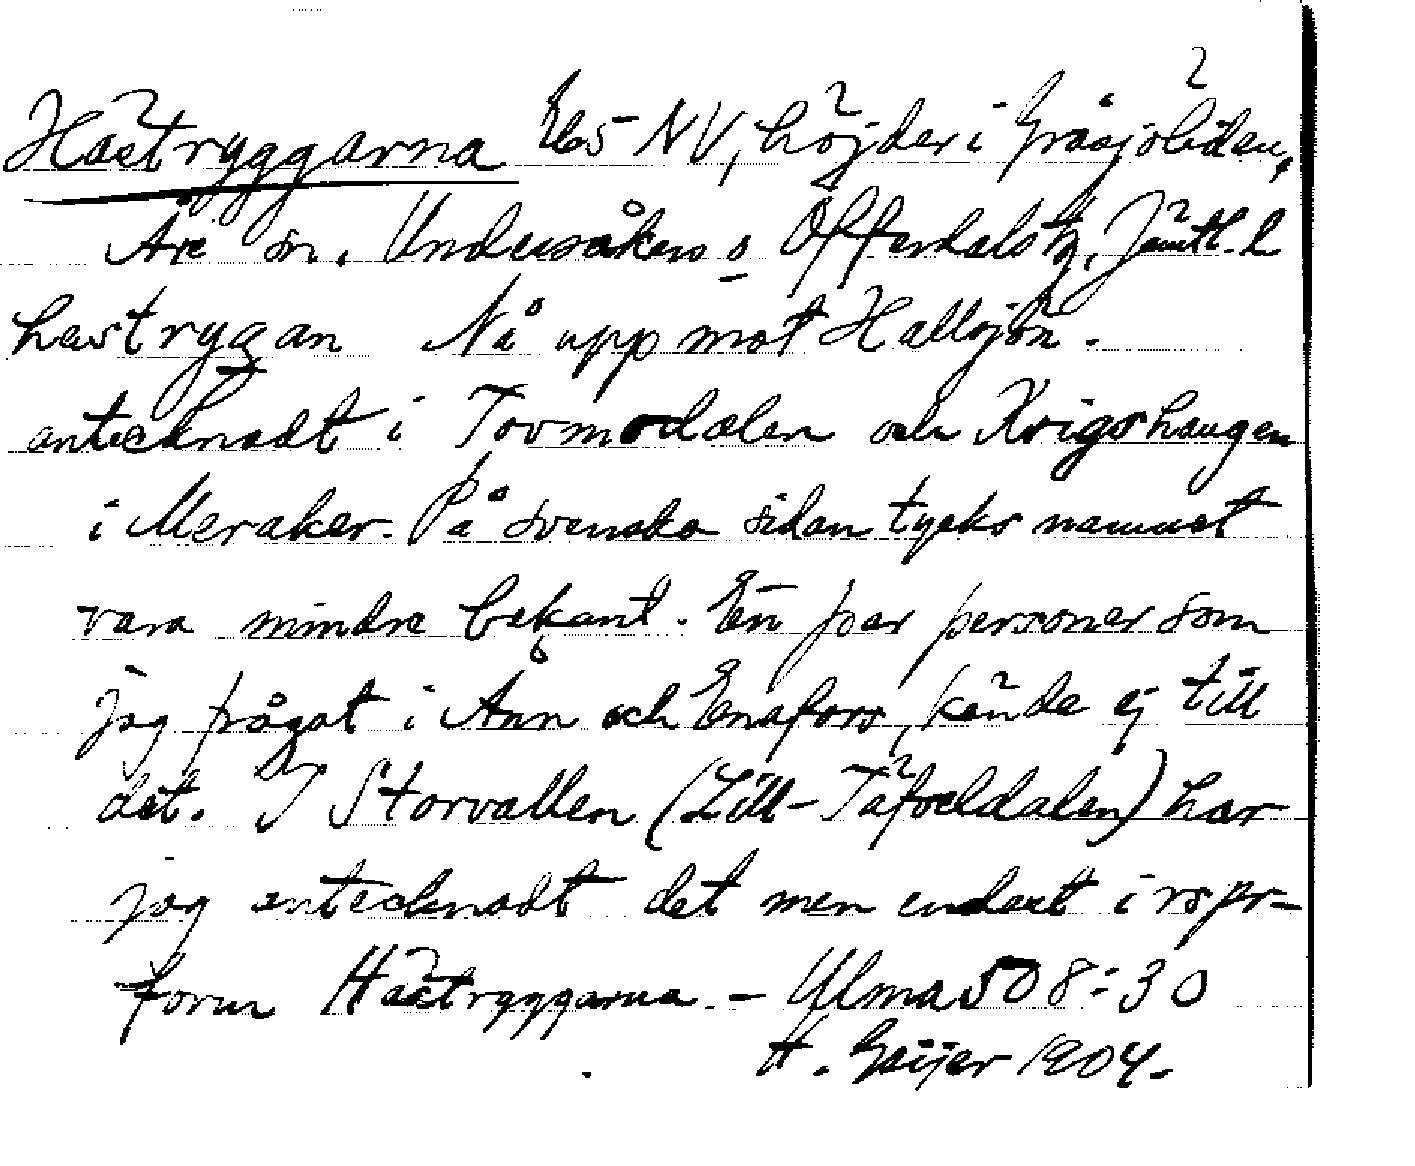 Hästryggarna Eb5 NV, höjder i Gråsjöliden,
Åre sn. Undersåkers o Offerdals tg, Jämtl. l
hästryggan Nå upp mot Hallsjön.
antecknadt i Tovmodalen och Krigshaugen
i Meraker. På svenska sidan tycks namnet
vara mindre bekant. En par personer som
jag frågat i Ånn och Enafors, kände ej till
det. I Storvallen (Lill-Täfveldalen) har
jag antecknadt det men endast i rspr-
form Hästryggarna. - Ulma 508:30
H. Geijer 1904.